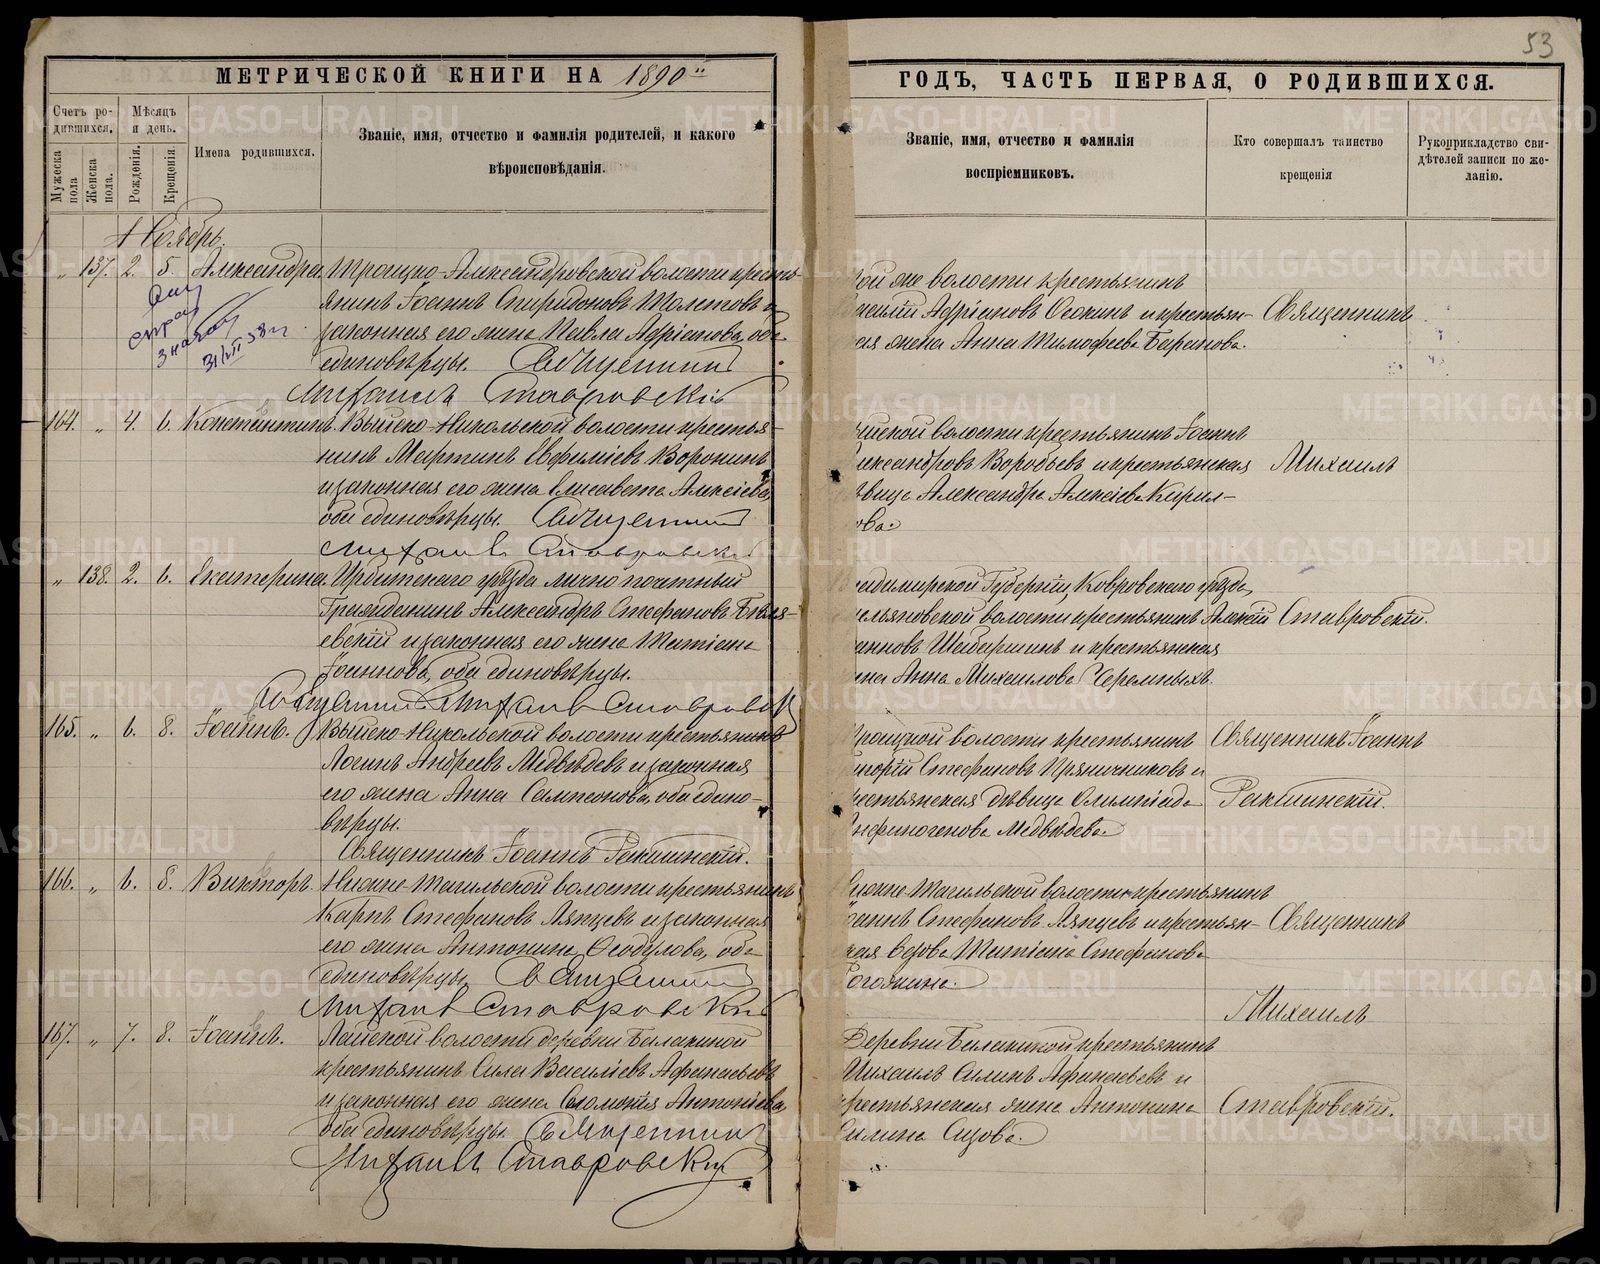 53
МЕТРИЧЕСКОЙ КНИГИ НА 1890
ГОДЪ, ЧАСТЬ ПЕРВАЯ, О РОДИВШИХСЯ.
Счетъ ро-
дившихся.
Мужеска пола
Женска пола.
Мѣсяцъ
и день.
Рожденія.
Крещенія.
Имена родившихся.
Званіе, имя, отчество и фамилія родителей, и какого
вѣроисповѣданія.
Званіе, имя, отчество и фамилія
воспріемниковъ.
Кто совершалъ таинство
крещенія
Рукоприкладство сви-
дѣтелей записи по же-
ланію.
Ноябрь.
„ 137. 2. 5. Александра Троицко-Александровской волости кресть-
янинъ Іоаннъ Спиридоновъ и
законная его жена Павла Адріанова, оба
единовѣрцы. Священникъ
Михаилъ Ставровскій
31/VII 58 г
той же волости крестьянинъ
Адріановъ Осокинъ и крестьян-
ская жена Анна Тимофеева Баранова.
Священникъ
164. „ 4. 6. Константинъ. Выйско-Никольской волости крестья-
нинъ Мартинъ Евфиміевъ Воронинъ
и законная его жена Елисавета Алексіева,
оба единовѣрцы. Священникъ
Михаилъ Ставровскій
волости крестьянинъ Іоаннъ
Александровъ Воробьевъ и крестьянская
дѣвица Александра Алексіева Кирил-
лова.
Михаилъ
„ 138. 2. 6. Екатерина. Ирбитскаго уѣзда лично почетный
Гражданинъ Александръ Стефановъ Бѣля-
евскій и законная его жена Татіана
Іоаннова, оба единовѣрцы.
Священникъ Михаилъ Ставровскій
Владимирской Губерніи, Ковровскаго уѣзда,
волости крестьянинъ Алексій
и крестьянская
жена Анна Михаилова Черемныхъ.
Ставровскій.
165. „ 6. 8. Іоаннъ. Выйско-Никольской волости крестьянинъ
Логинъ Андреевъ Медвѣдевъ и законная
его жена Анна Сампсонова, оба едино-
вѣрцы.
Священникъ Іоаннъ
Троицкой волости крестьянинъ
Григорій Стефановъ Пряничниковъ и
крестьянская дѣвица Олимпіада
Анфиногенова Медвѣдева.
Священникъ Іоаннъ
166. „ 6. 8. Викторъ. Нижне-Тагильской волости крестьянинъ
Карпъ Стефановъ Ляпцевъ и законная
его жена Антонина Ѳеодулова, оба
единовѣрцы. Священникъ
Михаилъ Ставровскій
Нижне-Тагильской волости крестьянинъ
Іоаннъ Стефановъ Ляпцевъ и крестьян-
ская вдова Татіана Стефанова
Рогожина.
Священникъ
Михаилъ
167. „ 7. 8. Іоаннъ. Лайской волости деревни Балакиной
крестьянинъ Сила Василіевъ Афанасьевъ
и законная его жена Соломонія Антоніева
оба единовѣрцы. Священникъ
Михаилъ Ставровскій
Деревни Балакиной крестьянинъ
Михаилъ Силинъ Афанасьевъ и
крестьянская жена Антонина
Силина Сизова.
Ставровскій.
METRIKI.GASO-URAL.RU